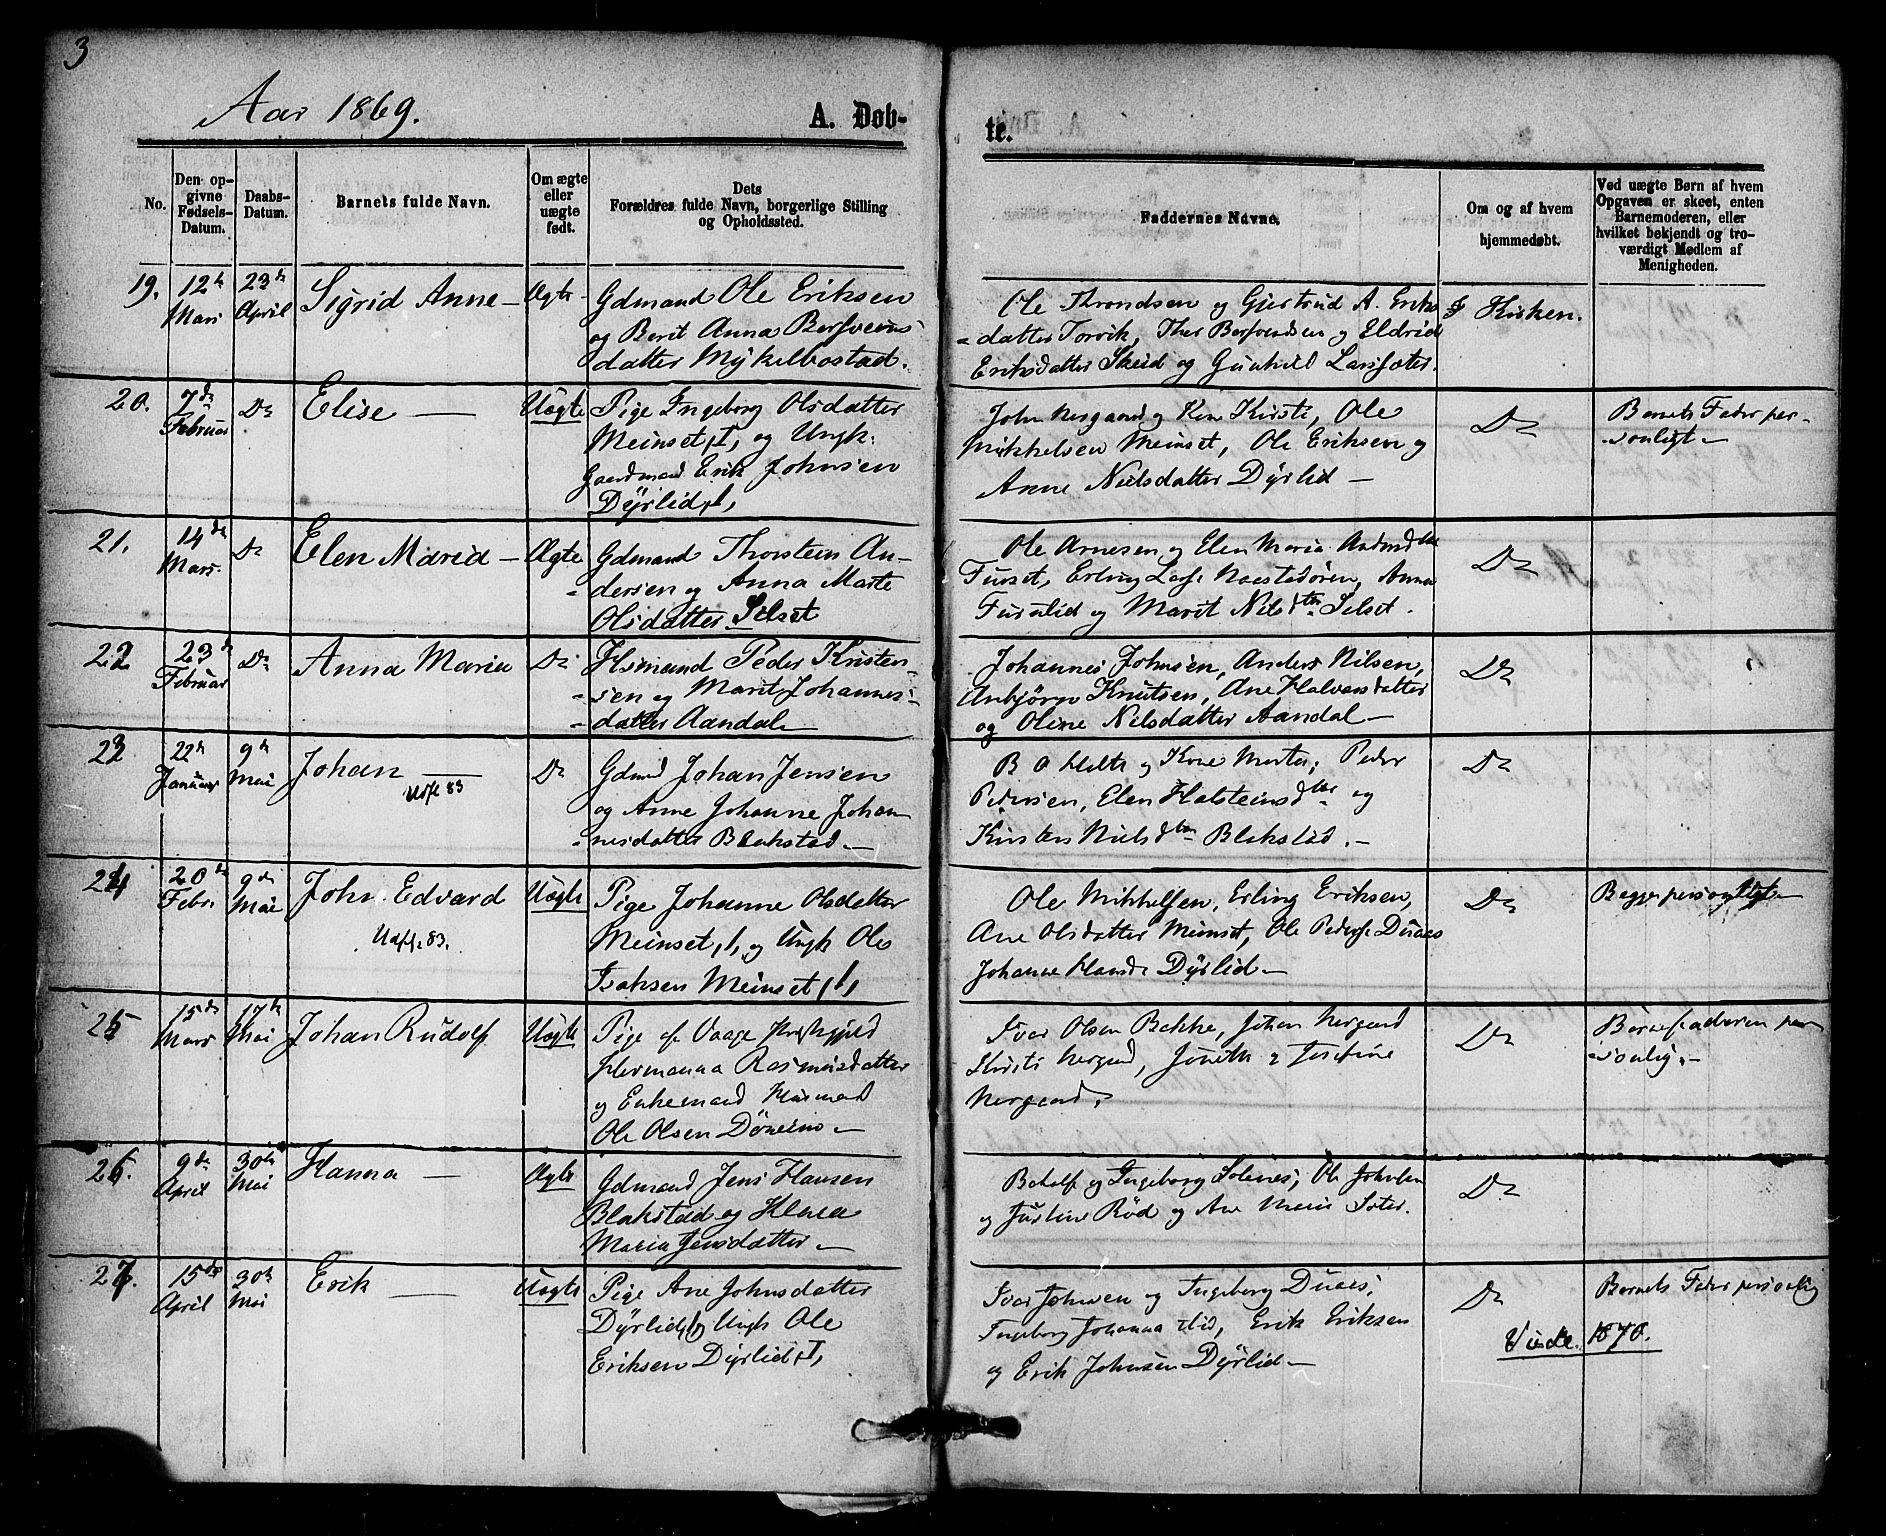 3
Aar 1869.
A. Døb-
te.
No.
Den op-
givne
Fødsels-
Datum.
Daabs-
Datum.
Barnets fulde Navn.
Om ægte
eller
uægte
født.
Dets
Forældres fulde Navn, borgerlige Stilling
og Opholdssted.
Faddernes Navne.
Om og af hvem
hjemmedøbt.
Ved uægte Børn af hvem
Opgaven er skeet, enten
Barnemoderen, eller
hvilket bekjendt og tro-
værdigt Medlem af
Menigheden.
19.
12te
Mars
23de
April
Sigrid Anne –
Ægte
Gdmand Ole Eriksen
og Berit Anna Bersveins-
datter Mykelbostad.
Ole Throndsen og Gjertrud A. Eriks
=datter Torvik, Ther Bersvendsen og Eldrid
Eriksdatter Skeid og Gunhild Larssæter.
I Kirken.
20.
7de
Februar
Do
Elise –
Uægte
Pige Ingeborg Olsdatter
Meinset, I, og Ungk:
Gaardmand Erik Johnsen
Dyrlid, 1,
John Nergaard og Kone Kirsti, Ole
Mikkelsen Meinset, Ole Eriksen og
Anne Nielsdatter Dyrlid –
Do
Barnets Fader per-
-sonligt –
21.
14de
Mars.
Do
Elen Maria –
Ægte
Gdmand Thorstein An-
=dersen og Anna Marte
Olsdatter Silset
Ole Arnesen og Elen Maria
Furset, Erling Lars. Naestadøren, Anna
Furulid og Marit Nilsdtr Silset.
Do
22
23de
Februar
Do
Anna Maria
Do
Hsmand Peder Kristen-
=sen og Marit Johannes-
=datter Aandal –
Johannes Johnsen, Anders Nilsen,
Anbjørn Knutsen, Ane Halvorsdatter
og Oline Nilsdatter Aandal –
Do
23
22de
Januar
9de
Mai
Johan –
Udfl 83
Do
Gdmd Johan Jensen
og Anne Johanne Johan
=nesdatter Blakstad –
B O Helth og Kone Marta, Peder
Pedersen, Elen Halsteinsdtr og
Kirsten Nielsdtr Blakstad. –
Do
24
20de
Febr.
9de
Mai
John Edvard
Udfl: 83.
Uægte
Pige Johanne Olsdatter
Meinset, 1, og Ungk Ole
Isaksen Meinset, 1,
Ole Mikkelsen, Erling Eriksen,
Ane Olsdatter Meinset, Ole Peders. Duaas
Johanne Hansd: Dyrlid –
Do
Begge personligt –
25
15de
Mars
17de
Mai
Johan Rudolf
Uægte
Pige af Vaage Præstegjeld
Hermanna Rasmusdatter
og Enkemand Husmand
Ole Olsen Døneim –
Ivar Olsen Bakke, Johan Nergaard
Kirsti Nergaard, Jonetta & Josefine
Nergaard.
Do
Barnefaderen per
=sonlig. –
26.
9de
April
30te
Mai
Hanna –
Ægte
Gdmand Jens Hansen
Blakstad og Klara
Maria Jensdatter –
Botolf og Ingeborg Solenes, Ole Johnsen
og Justine Rød og Ane Marie Sæter.
Do
27.
15de
April
30te
Mai
Erik –
Uægte
Pige Ane Johnsdatter
Dyrlid, 1, og Ungk Ole
Eriksen Dyrlid, I,
Ivar Johnsen og Ingeborg Duaas,
Ingeborg Johanna Lid, Erik Eriksen
og Erik Johnsen Dyrlid –
Do
Barnets Fader personlig
Vide 1870.